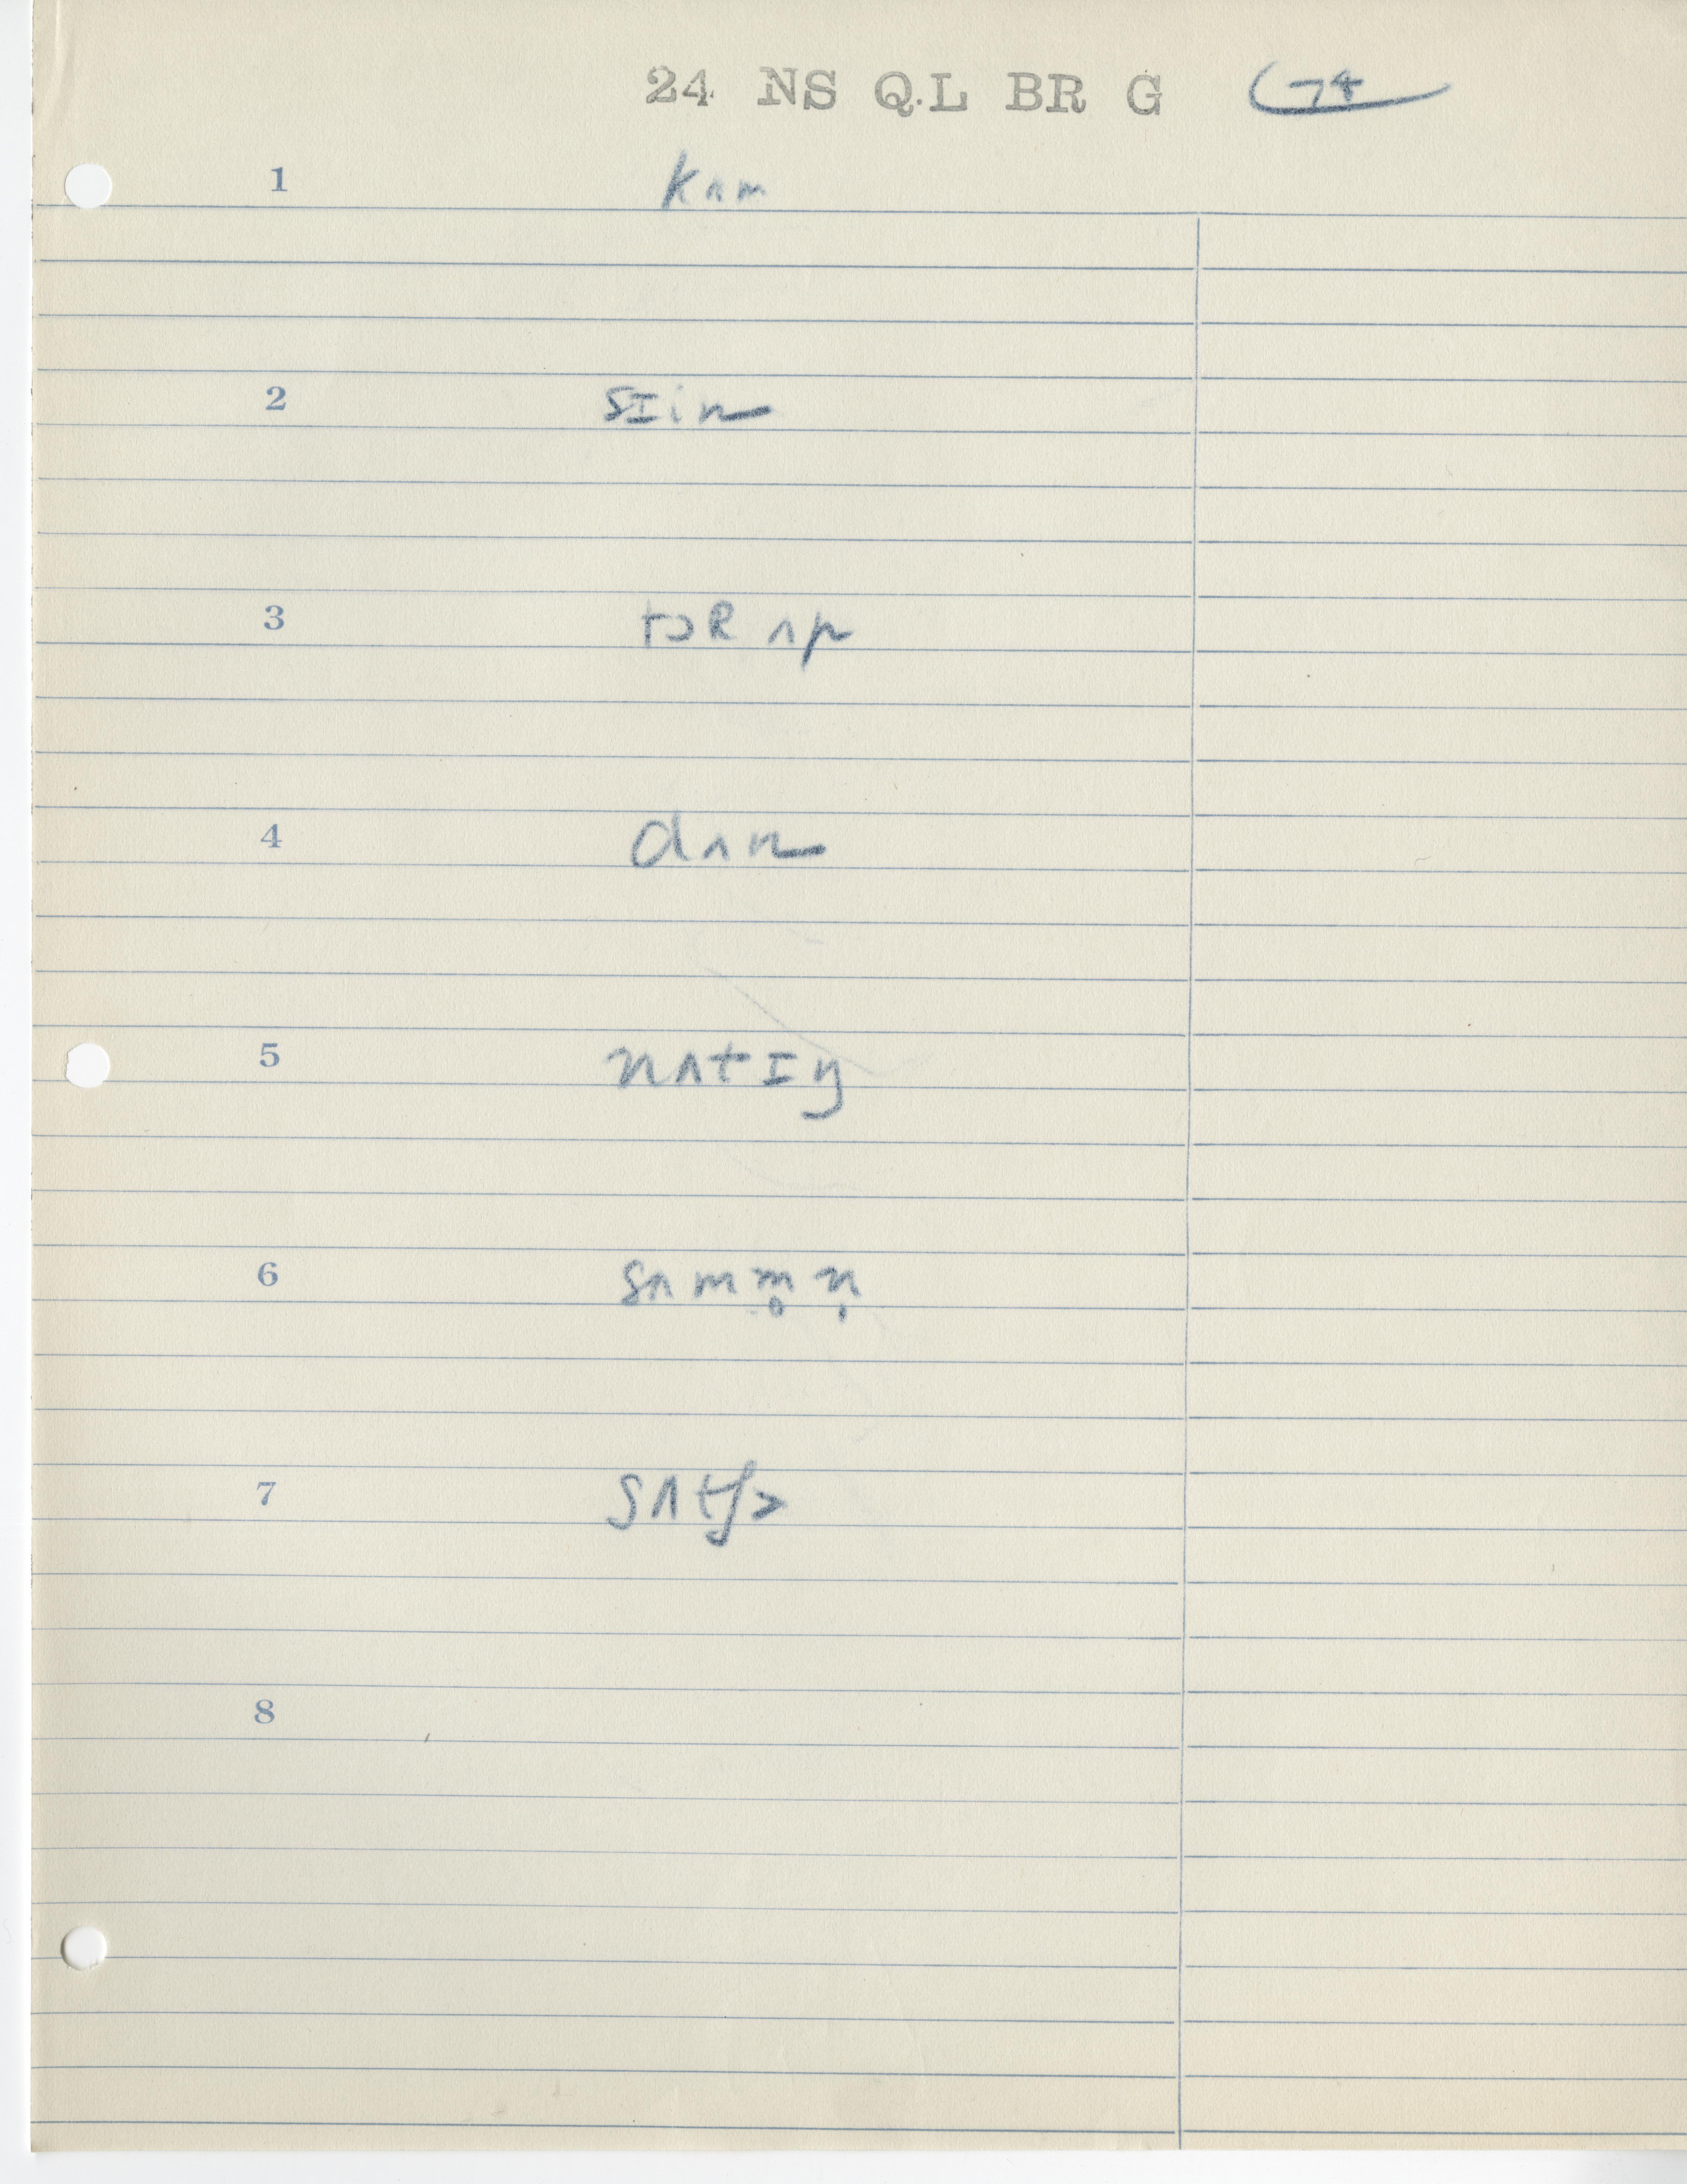 24 NS Q.L BR G 74
1 kʌm
2 sɪin
3 tɔR ʌp
4 dʌn
5 nʌtɪŋ
6 sʌmm̥n̩
7 sʌtʃ>
8